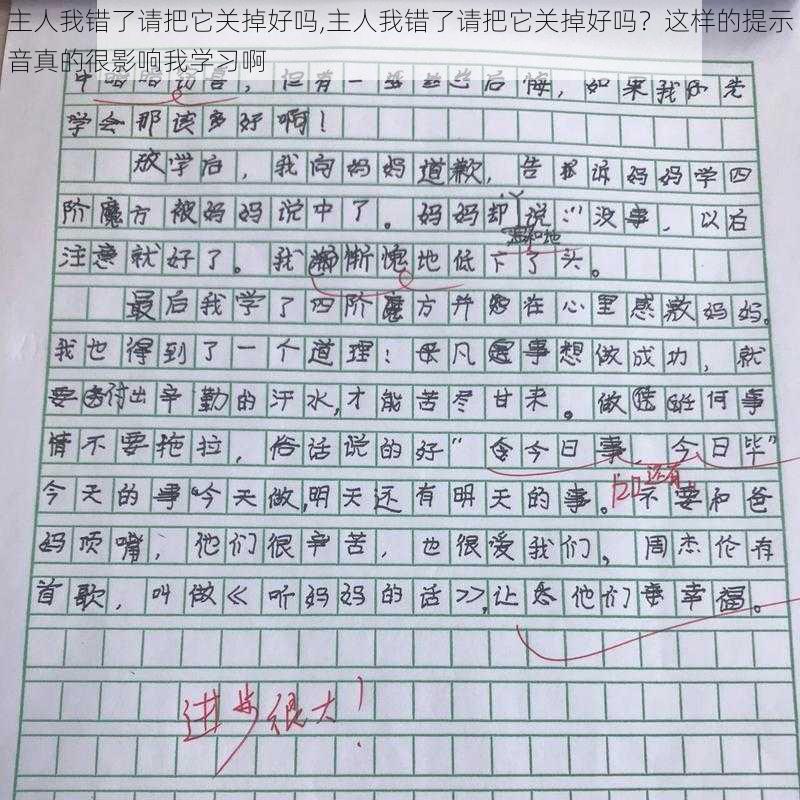 主人我错了请把它关掉好吗,主人我错了请把它关掉好吗？这样的提示
音真的很影响我学习啊
中暗暗窃喜，但有一些些后悔，如果我你先
学会那该多好啊！
放学后，我向妈妈道歉，告诉妈妈学四
阶魔方被妈妈说中了。妈妈却说："没事，以后
温和地
注意就好了。我渐惭愧地低下了头。
最后我学了四阶魔方并在心里感激妈妈。
我也得到了一个道理：每凡事想做成功，就
要付出辛勤的汗水,才能苦尽甘来。做任何事
情不要拖拉，俗话说的好"今日事，今日毕"
今天的事今天做,明天还有明天的事。不要和爸
还有
妈顶嘴，他们很辛苦，也很爱我们。周杰伦有
首歌，叫做《听妈妈的话》,让他们幸福。
进步很大！